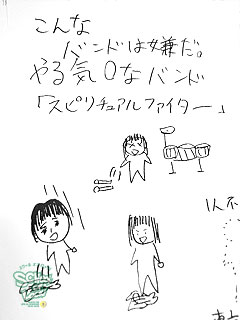 こんな
バンドは嫌だ。
やる気0なバンド
「スピリチュアルファイター」